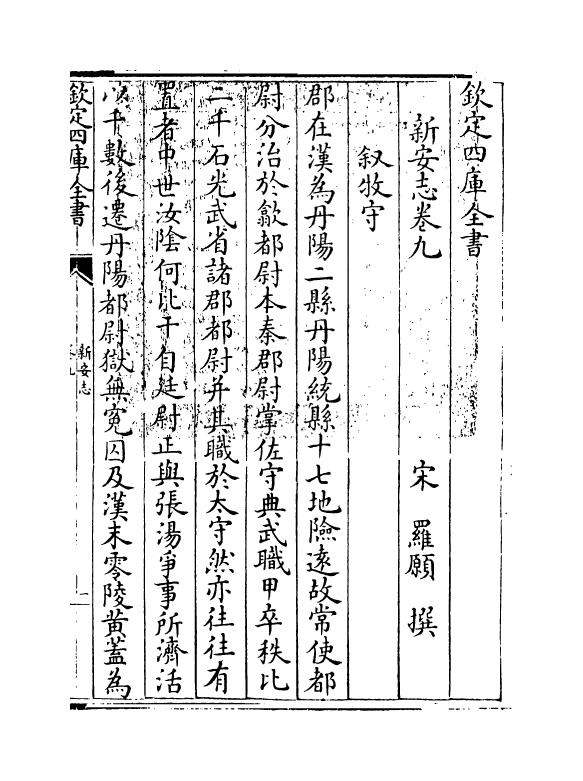 欽定四庫全書
新安志卷九
宋 羅願 撰
叙牧守
郡在漢為丹陽二縣丹陽統縣十七地險遠故常使都
尉分治於歙都尉本秦郡尉掌佐守典武職甲卒秩比
二千石光武省諸郡都尉并其職於太守然亦往往有
置者中世汝陰何比干自廷尉正與張湯爭事所濟活
以千數後遷丹陽都尉獄無寃囚及漢末零陵黄蓋為
欽定四庫全書
新安志